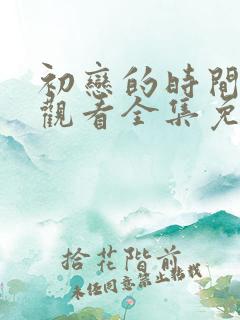 初戀的時間
觀看全集免
拾花階前
未經同意禁止轉載